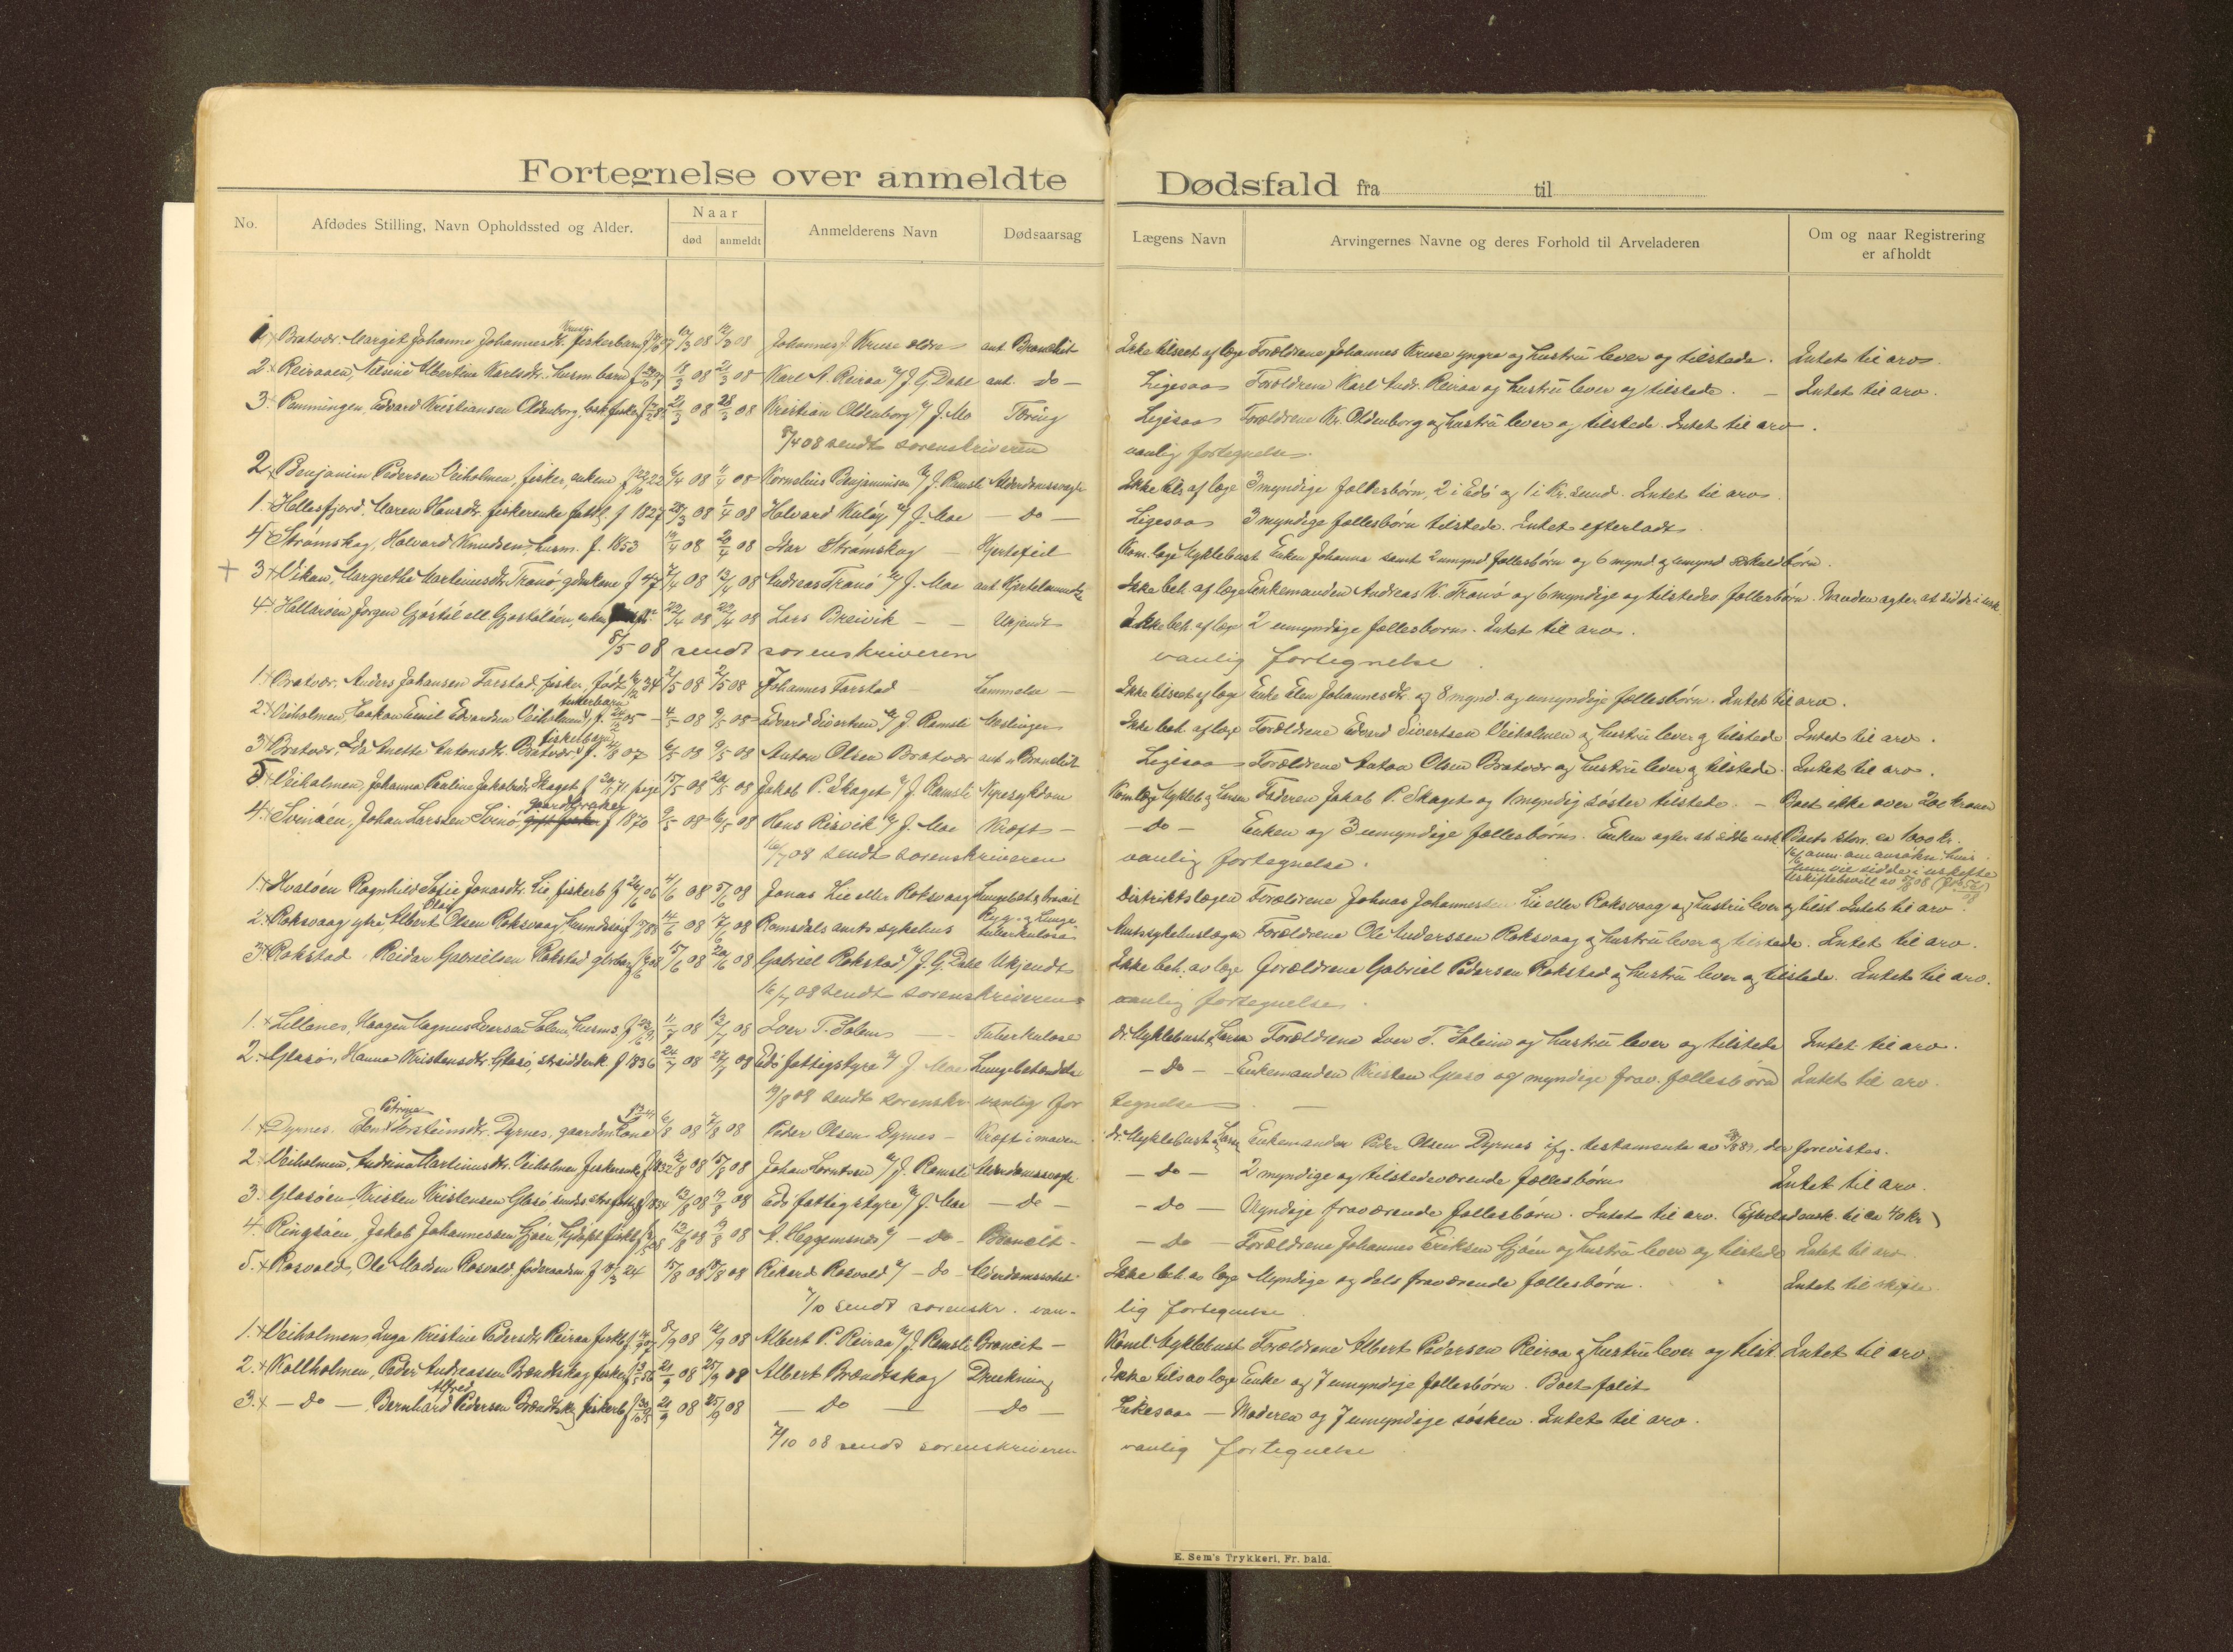 Fortegnelse over anmeldte Dødsfald fra til
No. Afdødes Stilling, Navn Opholdssted og Alder. Naar død anmeldt Anmelderens Navn Dødsaarsag Lægens Navn Arvingernes Navne og deres Forhold til Arveladeren Om og naar Registrering er afholdt
1. Bratvær. Margit Johanne Johannesdtr. Kruse fiskerbarn 08 08 Johannes J Kruse ældre ant Bronchit Ikke tilseet af læge Forældrene Johannes Kruse yngre og hustru lever og tilstede. Intet til arv.
2. Reiraaen, Albertine Karlsdtr. husm.barn 08 08 Karl A. Reiraa v/ J G Dahl ant. do - Ligesaa Forældrene Karl Andr. Reiraa og hustru lever og tilstede. - Intet til arv.
3. Edvard Kristiansen Oldenborg, 08 28/3 08 Kristian Oldenborg v/ J. Mo Tæring Ligesaa Forældrene Kr. Oldenborg og hustru lever og tilstede. Intet til arv.
8/4 08 sendt sorenskriveren vanlig fortegnelse.
2. Benjamin Pedersen Veiholmen, fisker, enkem 08 11/4 08 Kornelius Benjaminsen v/ J. Ramsli Alderdomssvagh Ikke tils af læge 3 myndige fællesbørn, 2 i Edø og 1 i Kr.sund. Intet til arv.
1. Hellesfjord, Maren Hansdtr. fiskerenke f 1827 28/3 08 1/4 08 Halvard Kuløy v/ J. Moe - do - Ligesaa 3 myndige fællesbørn tilstede. Intet efterladt
4 Strømskag, Halvard Knudsen, husm. f. 1853 08 08 Iver Strømskag - Hjertefeil Kom.læge Myklebust Enken Johanna samt 2 umynd fællesbørn og 6 mynd. og umynd særkuldbørn.
3 Vikan, Margrethe Martinusdtr Tranø, f 47 08 13/4 08 Andreas Tranø v/ J. Moe ant Hjertelammelse Ikke beh. af læge Enkemanden Andreas K. Tranø og 6 myndige og tilstedev. fællesbørn. Manden agter at sidde i usk.
4. Hallarøen Jørgen Gjøstøl ell. Gjøstøløen, 22/4 08 08 Lars Breivik - - Ukjendt Ikke beh. af læge 2 umyndige fællesbørn. Intet til arv.
8/5 08 sendt sorenskriveren vanlig fortegnelse.
1. Bratvær. Anders Johansen Farstad, fisker, født 34 2/5 08 2/5 08 Johannes Farstad - Lammelse - Ikke tilseet af læge Enke Elen Johannesdtr. og 8 mynd. og umyndige fællesbørn. Intet til arv.
2. Veiholmen, Haakon Emil Edvardsen Veiholmen, fiskerbarn f. 05 - 4/5 08 9/5 08 - Edvard Sivertsen v/ J. Ramsli Meslinger Ikke beh. af læge Forældrene Edvard Sivertsen Veiholmen og hustru lever og tilstede Intet til arv.
3 Bratvær, Ida Anette Antonsdtr. Bratvær, fiskerbarn f. 4/8 07 08 9/5 08 Anton Olsen Bratvær ant. Bronchit Ligesaa Forældrene Anton Olsen Bratvær og hustru lever og tilstede. Intet til arv.
5 Veiholmen, Johanna Pauline Jakobsdtr Skaget f 71 pige 15/5 08 20/5 08 Jakob P. Skaget v/ J. Ramsli Nyresygdom Kom.læge Mykleb og Larsen Faderen Jakob P. Skaget og 1 myndig søster tilstede. - Boet ikke over 200 kroner
4. Svinøen, Johan Larssen Svinø, gaardbruker f 1870 9/5 08 16/5 08 Hans Risvik v/ J. Moe Kræft - - do - Enken og 3 umyndige fællesbørn. Enken agter at sidde usk Boets størr. ca 1000 kr.
16/7 08 sendt sorenskriveren vanlig fortegnelse.
1. Hvaløen Ragnhild Sofie Jonasdtr. Lie, fiskerb f 06 4/6 08 5/6 08 Jonas Lie eller Roksvaag Distriktslægen Forældrene Johnas Johannesen Lie eller Roksvaag og hustru lever og tilst Intet til arv.
2. Roksvaag ytre, Albert Olaf Olsen Roksvaag, 14/6 08 08 Romsdals amts sykehus Ryg- og Lungetuberkulose Amtsykehuslægen Forældrene Ole Anderssen Roksvaag og hustru lever og tilstede. Intet til arv.
3 Rokstad Reidar Gabrielsen Rokstad 15/6 08 20/6 08 Gabriel Rokstad v/ J. G. Dahl Ukjendt Ikke beh. av læge Forældrene Gabriel Pedersen Rokstad og hustru lever og tilstede. Intet til arv.
16/7 08 sendt sorenskriveren vanlig fortegnelse.
1. Lillenes, Haagen Magnus Iversen Solem, husms. 11/7 08 13/7 08 Iver T. Solem - - Tuberkulose dr. Myklebust, Larsen Forældrene Iver T. Solem og hustru lever og tilstede Intet til arv.
2. Glasø, Hanna Kristensdtr. Glasø, f 1836 24/7 08 27/7 08 Edø fattigstyre v/ J Moe Lungebetændelse - do - Enkemanden Kristen Glasø og myndige frav. fællesbørn Intet til arv.
19/8 08 sendt sorenskr vanlig fortegnelse
1. Dyrnes. Elen Petrine Torsteinsdtr. Dyrnes, gaardm.kone 6/8 08 7/8 08 Peder Olsen Dyrnes - Kræft i maven dr. Myklebust Larsen Enkemanden Peder Olsen Dyrnes ifg. testamente av der forevistes.
2. Veiholmen, Andrine Martinusdtr. Veiholmen fiskerenke 08 15/8 08 Johan Lorentsen v/ J. Ramsli Alderdomssvagh - do - 2 myndige og tilstedeværende fællesbørn Intet til arv.
3. Glasøen Kristen Kristensen Glasø 13/8 08 08 Edø fattigstyre v/ J. Moe - do - - do - Myndige fraværende fællesbørn. Intet til arv. (Efterladensk. til ca 40 kr)
4. Ringsøen, Jakob Johannessen Gjøen, 13/8 08 08 A. Heggemsnes v/ - do - Bronchit - - do - Forældrene Johannes Eriksen Gjøen og hustru lever og tilstede Intet til arv.
5. Rosvold, Ole Madsen Rosvold, føderaadsm f 24 15/8 08 08 Rikard Rosvold v/ - do - Ikke beh. av læge Myndige og dels fraværende fællesbørn. Intet til skifte.
7/10 sendt sorenskr. vanlig fortegnelse
1. Veiholmen, Inga Kristine Pedersdtr. Reiraa fiskb 8/9 08 08 Albert P. Reiraa v/ J. Ramsli Broncit - Koml. Myklebust Forældrene Albert Pedersen Reiraa og hustru lever og tilst. Intet til arv.
2. Kallholmen, Peder Andreassen Brændskag fisker 21/9 08 25/9 08 Albert Brændskag Drukning Ikke tils av læge Enke og 7 umyndige fællesbørn. Boet falit
3. - do - Bernhard Alfred Pedersen Brændskag fiskerb 21/9 08 25/9 08 - do - - do - Likesaa - Moderen og 7 umyndige søsken. Intet til arv.
7/10 08 sendt sorenskriveren vanlig fortegnelse.
E. Sem's Trykkeri, Fr.hald.